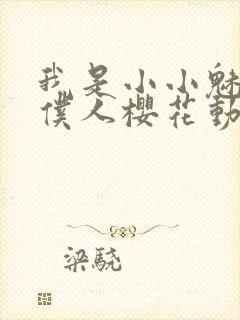 我是小小魅
僕人櫻花動
梁驍